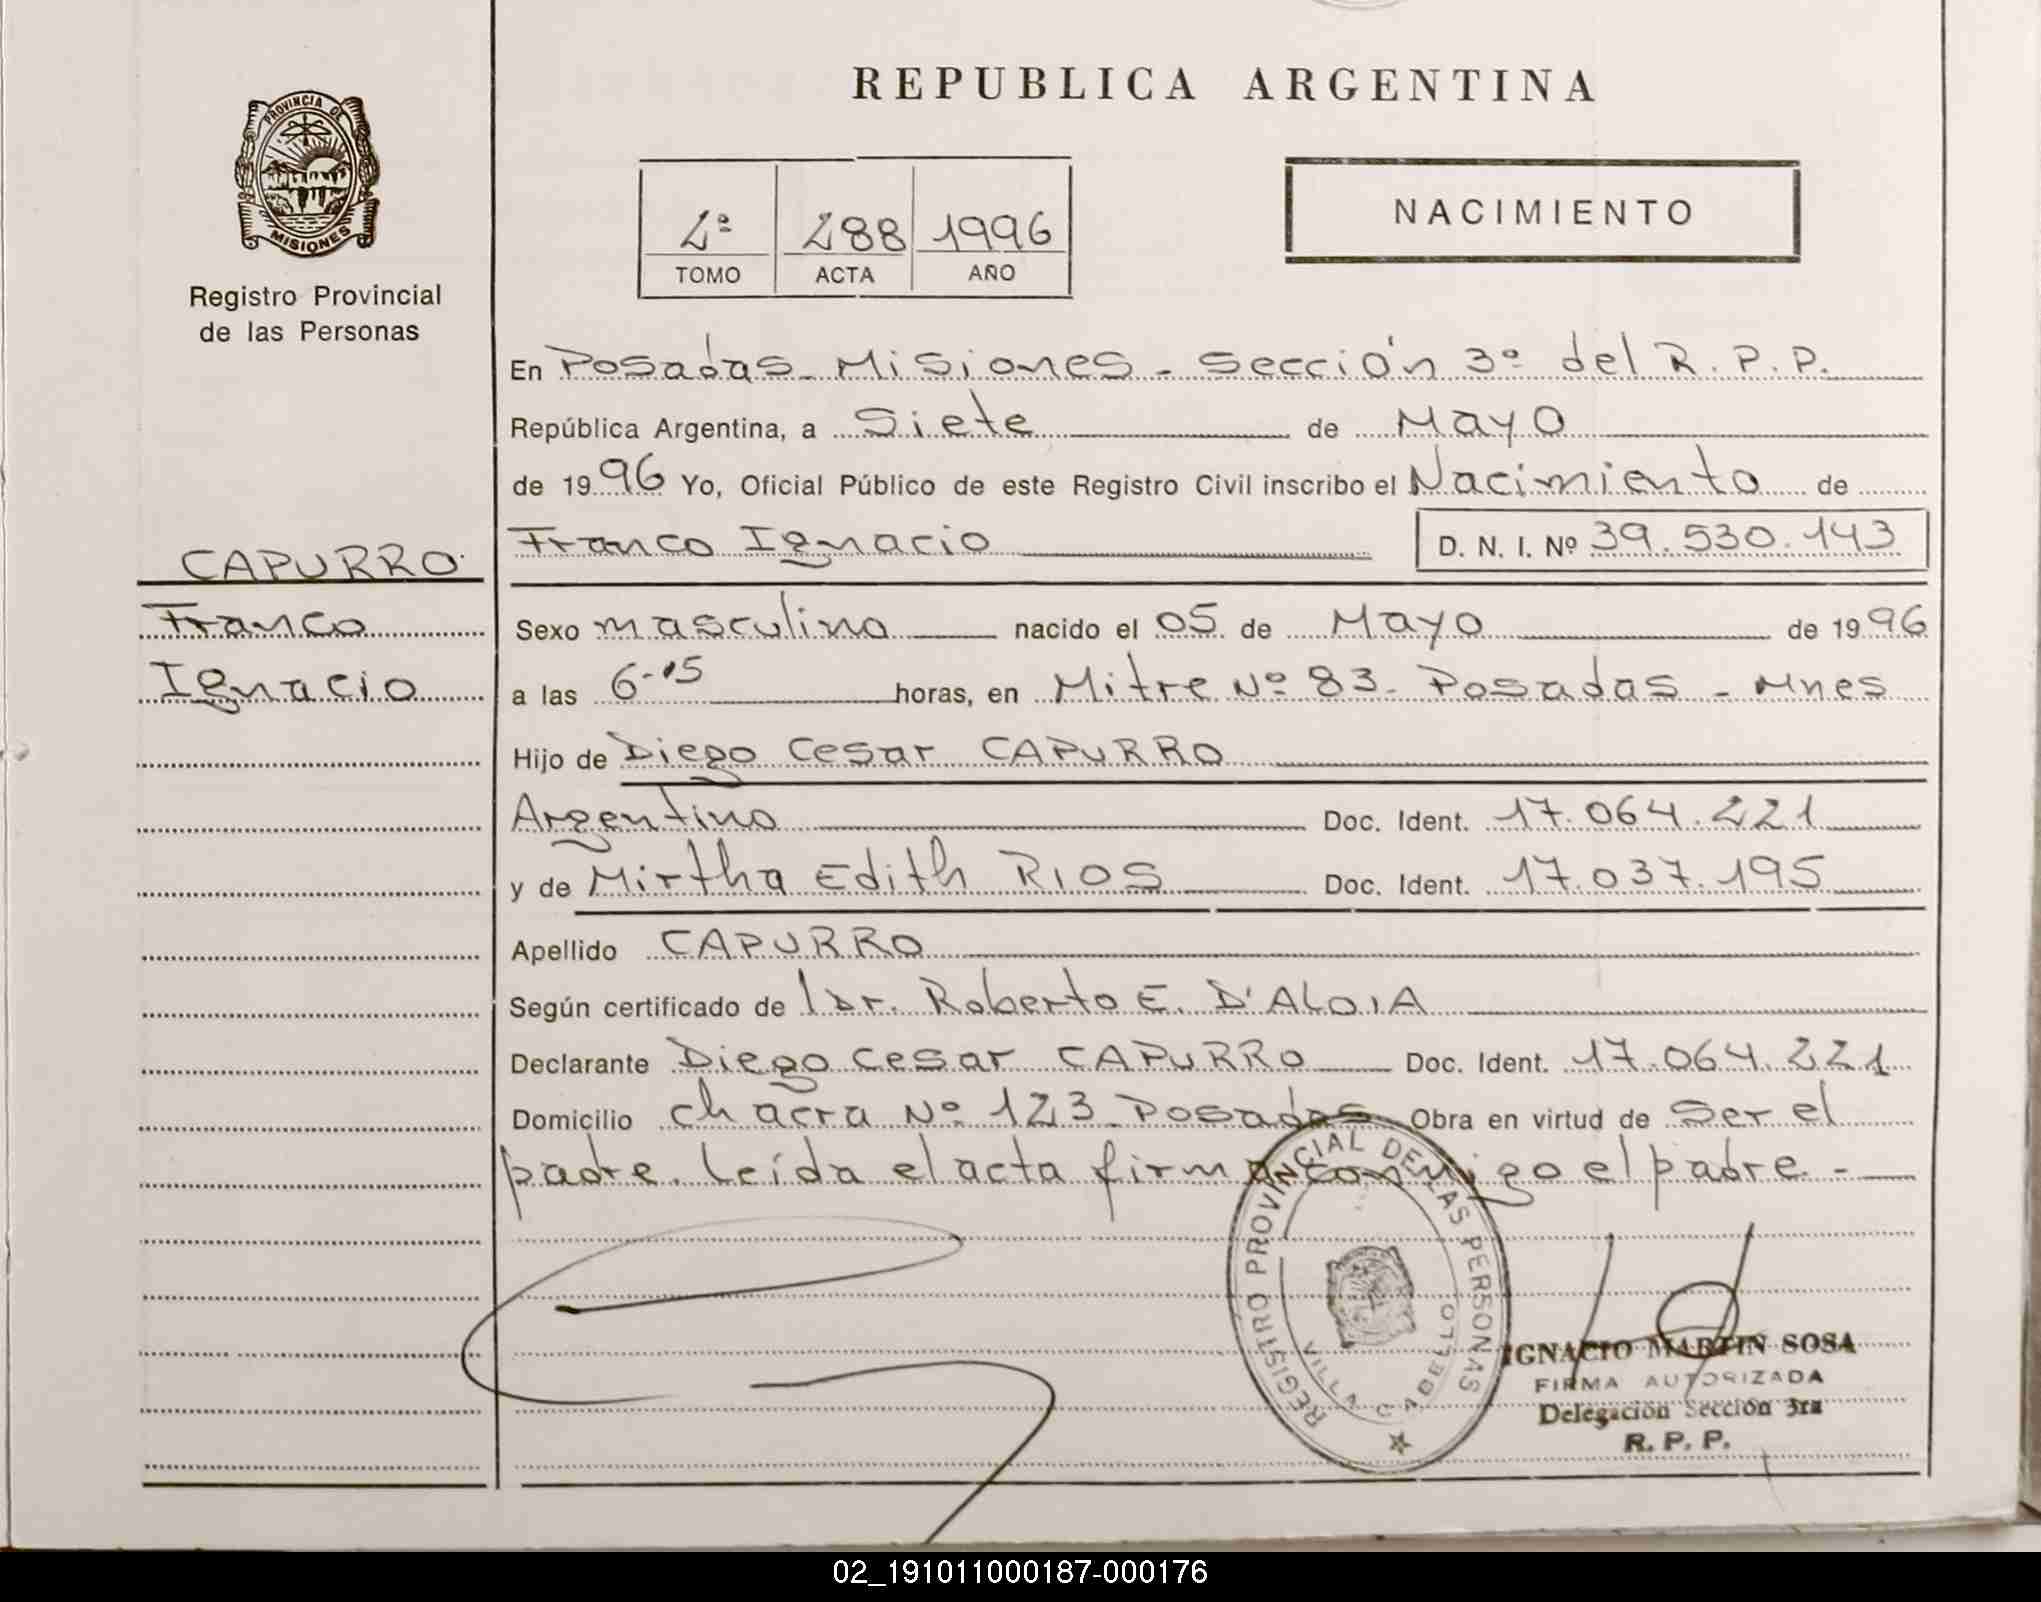 REPUBLICA ARGENTINA
PROVINCIA DE
MISIONES
Registro Provincial
de las Personas
2º 288 1996
TOMO ACTA AÑO
NACIMIENTO
En Posadas - Misiones - Sección 3º del R. P. P.
República Argentina, a Siete de Mayo
de 1996 Yo, Oficial Público de este Registro Civil inscribo el Nacimiento de
Franco Ignacio D. N. I. Nº 39.530.143
CAPURRO
Franco
Ignacio
Sexo masculino nacido el 05 de Mayo de 1996
a las 6-15 horas, en Mitre Nº 83 - Posadas - Mnes
Hijo de Diego Cesar CAPURRO
Argentino Doc. Ident. 17.064.221
y de Mirtha Edith RIOS Doc. Ident. 17.037.195
Apellido CAPURRO
Según certificado de l Dr. Roberto E. D'ALOIA
Declarante Diego Cesar CAPURRO Doc. Ident. 17.064.221
Domicilio chacra Nº 123 - Posadas Obra en virtud de ser el
padre. Leída el acta firma conmigo el padre. -
REGISTRO PROVINCIAL DE LAS PERSONAS
VILLA CABELLO
IGNACIO MARTIN SOSA
FIRMA AUTORIZADA
Delegación Sección 3ra
R. P. P.
02_191011000187-000176